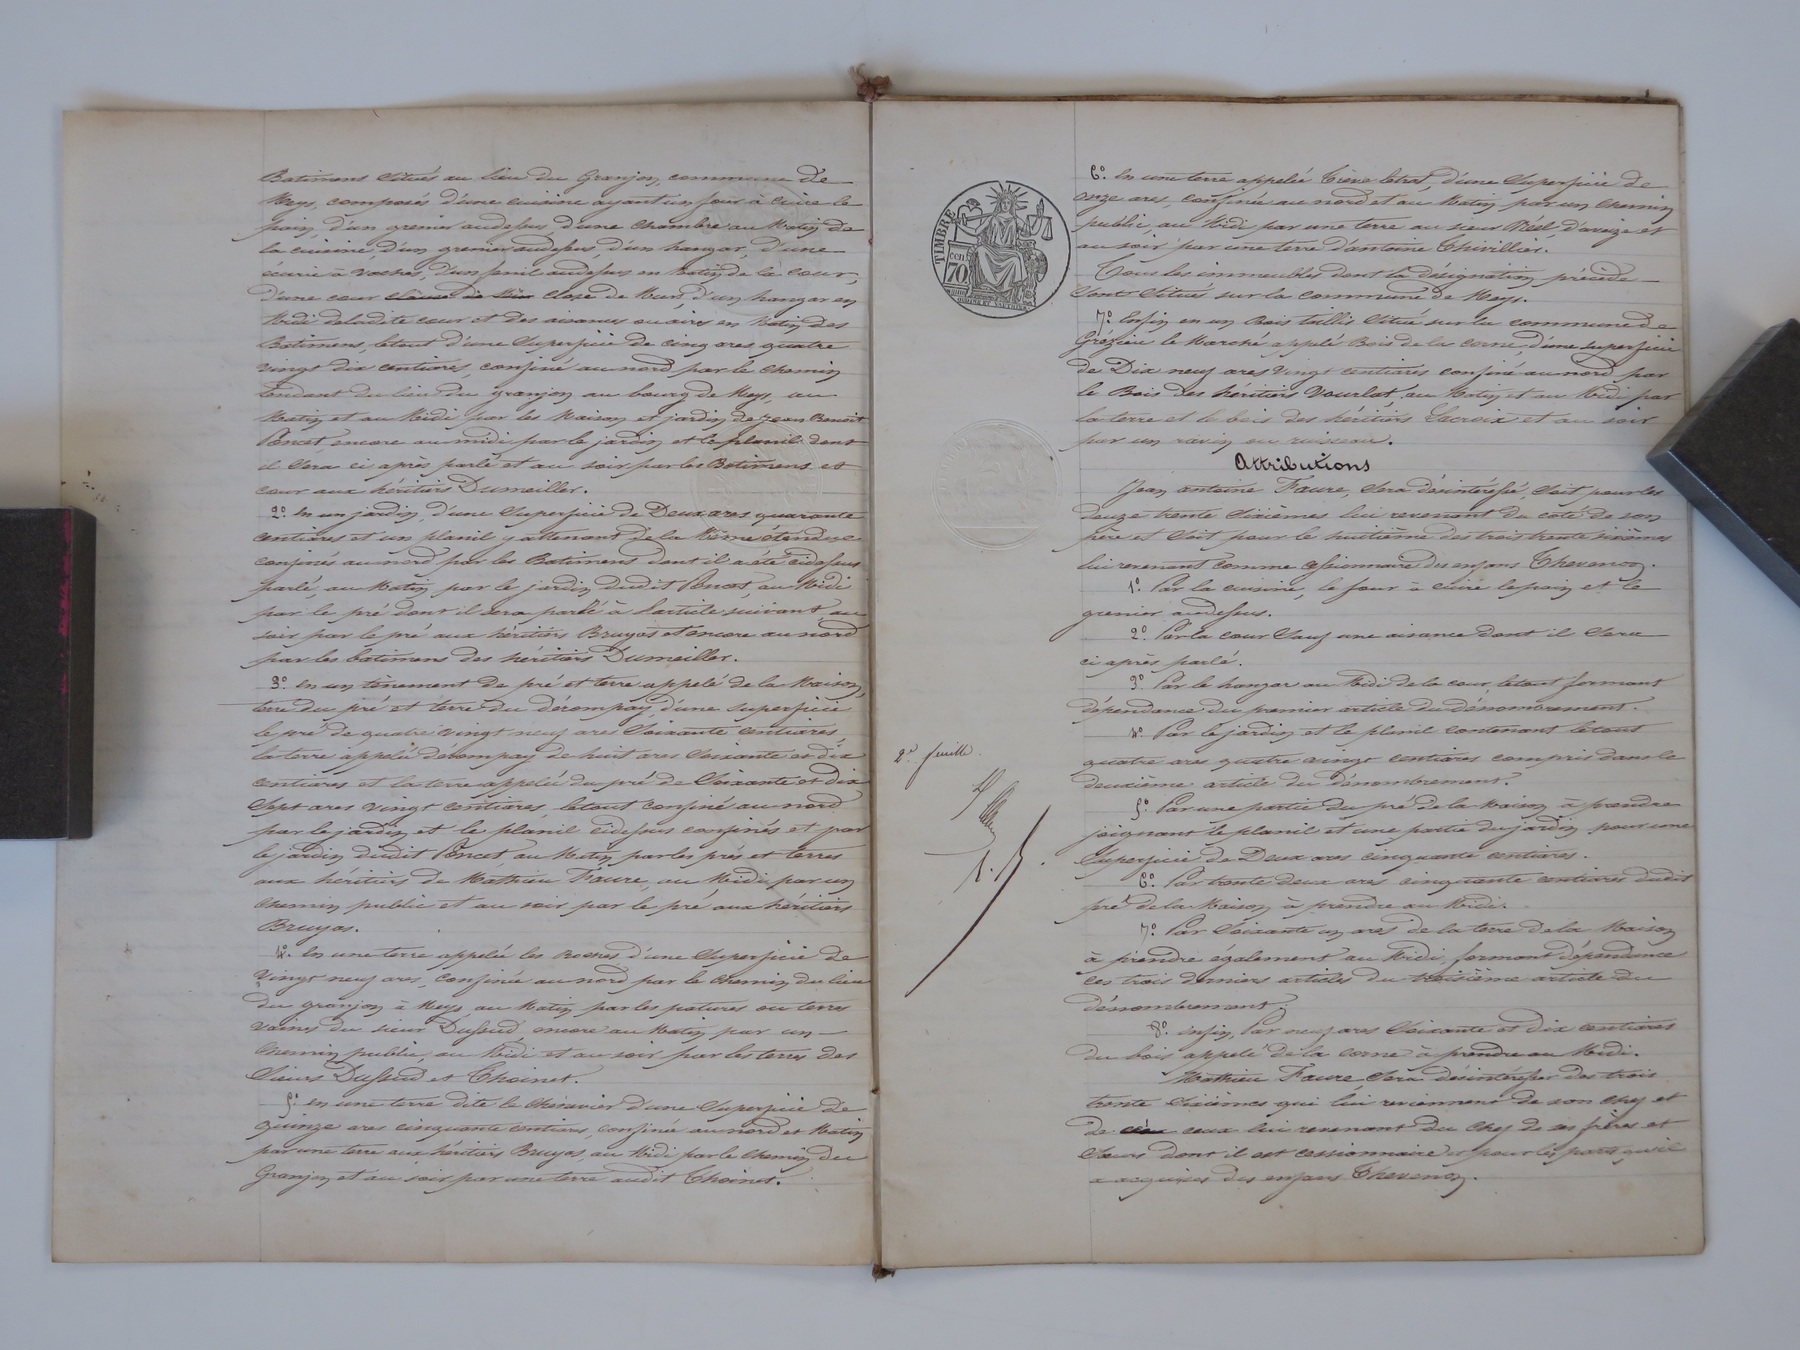 Batimens Situés au lieu du Granjon, commune de
Meys, composés d'une cuisine ayant un four à cuire le
pain, d'un grenier audessus, d'une chambre au Matin de
la cuisine, d'un grenier audessus, d'un hangar, d'une
écurie à vaches, d'un fenil audessus en Matin de la cour,
d'une cour close de Murs, d'un hangar en
Midi de ladite cour et des aisances ou aires en Matin des
Batimens, letout d'une Superficie de cinq ares quatre
vingt dix centiares, confiné au nord par le chemin
tendant du lieu du granjon au bourg de Meys, au
Matin et au Midi par les Maison et jardin de Jean Benoit
Poncet, encore au midi par le jardin et le planil dont
il Sera ci après parlé et au soir par les Batimens et
cour aux héritiers Dumeiller.
2º. En un jardin, d'une Superficie de Deux ares quarante
centiares et un planil y attenant de la Même étendue
confinés au nord par les Batimens dont il a été cidessus
parlé, au Matin par le jardin dudit Poncet, au Midi
par le pré dont il sera parlé à l'article suivant au
soir par le pré aux héritiers Bruyas et encore au nord
par les batimens des héritiers Dumeiller.
3º. En un tènement de pré et terre appelé de la Maison,
terre du pré et terre du dérompay, d'une superficie
le pré de quatre vingt neuf ares Soixante centiares,
la terre appelé dérompay de huit ares Soixante et dix
centiares et la terre appelé du pré de Soixante et Dix
Sept ares vingt centiares, letout confiné au nord
par le jardin et le planil cidessus confinés et par
le jardin dudit Poncet au Matin par les prés et terres
aux héritiers de Mathieu Faure, au Midi par un
chemin public et au soir par le pré aux héritiers
Bruyas.
4º. En une terre appelée les Roches d'une Superficie de
Vingt neuf ares, confinée au nord par le chemin du lieu
du granjon à Meys, au Matin par les patures ou terres
vaines du sieur Dussud, encore au Matin par un
chemin public, au Midi et au soir par les terres des
Sieurs Dussud et Choinet.
5º. En une terre dite le Chéravier d'une Superficie de
quinze ares cinquante centiares, confinée au nord et Matin
par une terre aux héritiers Bruyas, au Midi par le chemin du
Granjon et au soir par une terre audit Choinet.
TIMBRE
70 cen
2e. feuille.
6º. En une terre appelée d'une Superficie de
onze ares, confinée au nord et au Matin par un chemin
public, au Midi par une terre au sieur Réel d'aveize et
au soir par une terre d'antoine Thivillier.
Tous les immeubles dont la désignation précède
Sont Situés sur la commune de Meys.
7º. Enfin en un Bois taillis Situé sur la commune de
Grézieu le Marché appelé Bois de la corne, d'une superficie
de Dix neuf ares vingt centiares confiné au nord par
le Bois des héritiers Vourlat, au Matin et au Midi par
la terre et le bois des héritiers Lacroix et au soir
par un ravin ou ruisseau.
Attributions
Jean antoine Faure, Sera désintéressé, Soit pour les
douze trente Sixièmes lui revenant du coté de son
père et Soit pour le huitième des trois trente sixièmes
lui revenant comme cessionnaire des enfans Thevenon.
1º. Par la cuisine, le four à cuire le pain et le
grenier audessus.
2º Par la cour Sauf une aisance dont il Sera
ci après parlé.
3º Par le hangar au Midi de la cour, letout formant
dépendance du premier article du dénombrement.
4º. Par le jardin et le planil contenant letout
quatre ares quatre vingt centiares compris dans le
deuxième article du Dénombrement.
5º. Par une partie du pré de la Maison à prendre
joignant le planil et une partie du jardin pour une
Superficie de Deux ares cinquante centiares.
6º. Par trente deux ares cinquante centiares dudit
pré de la Maison à prendre au Midi.
7º. Par Soixante un ares de la terre de la Maison
à prendre également au Midi, formant dépendance
ces trois derniers articles du troisième article du
dénombrement.
8º. enfin, Par neuf ares Soixante et dix centiares
du bois appelé de la corne à prendre au Midi.
Mathieu Faure Sera désintéresser des trois
trente Sixièmes qui lui reviennent de son chef et
de ceux lui revenant du chef de ses frères et
Sœurs dont il est cessionnaire et pour les parts qu'il
a acquises des enfans Thevenon.